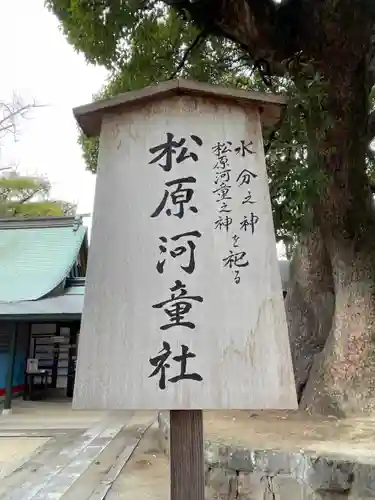 松原河童社
水分之神
松原河童之神
を祀る